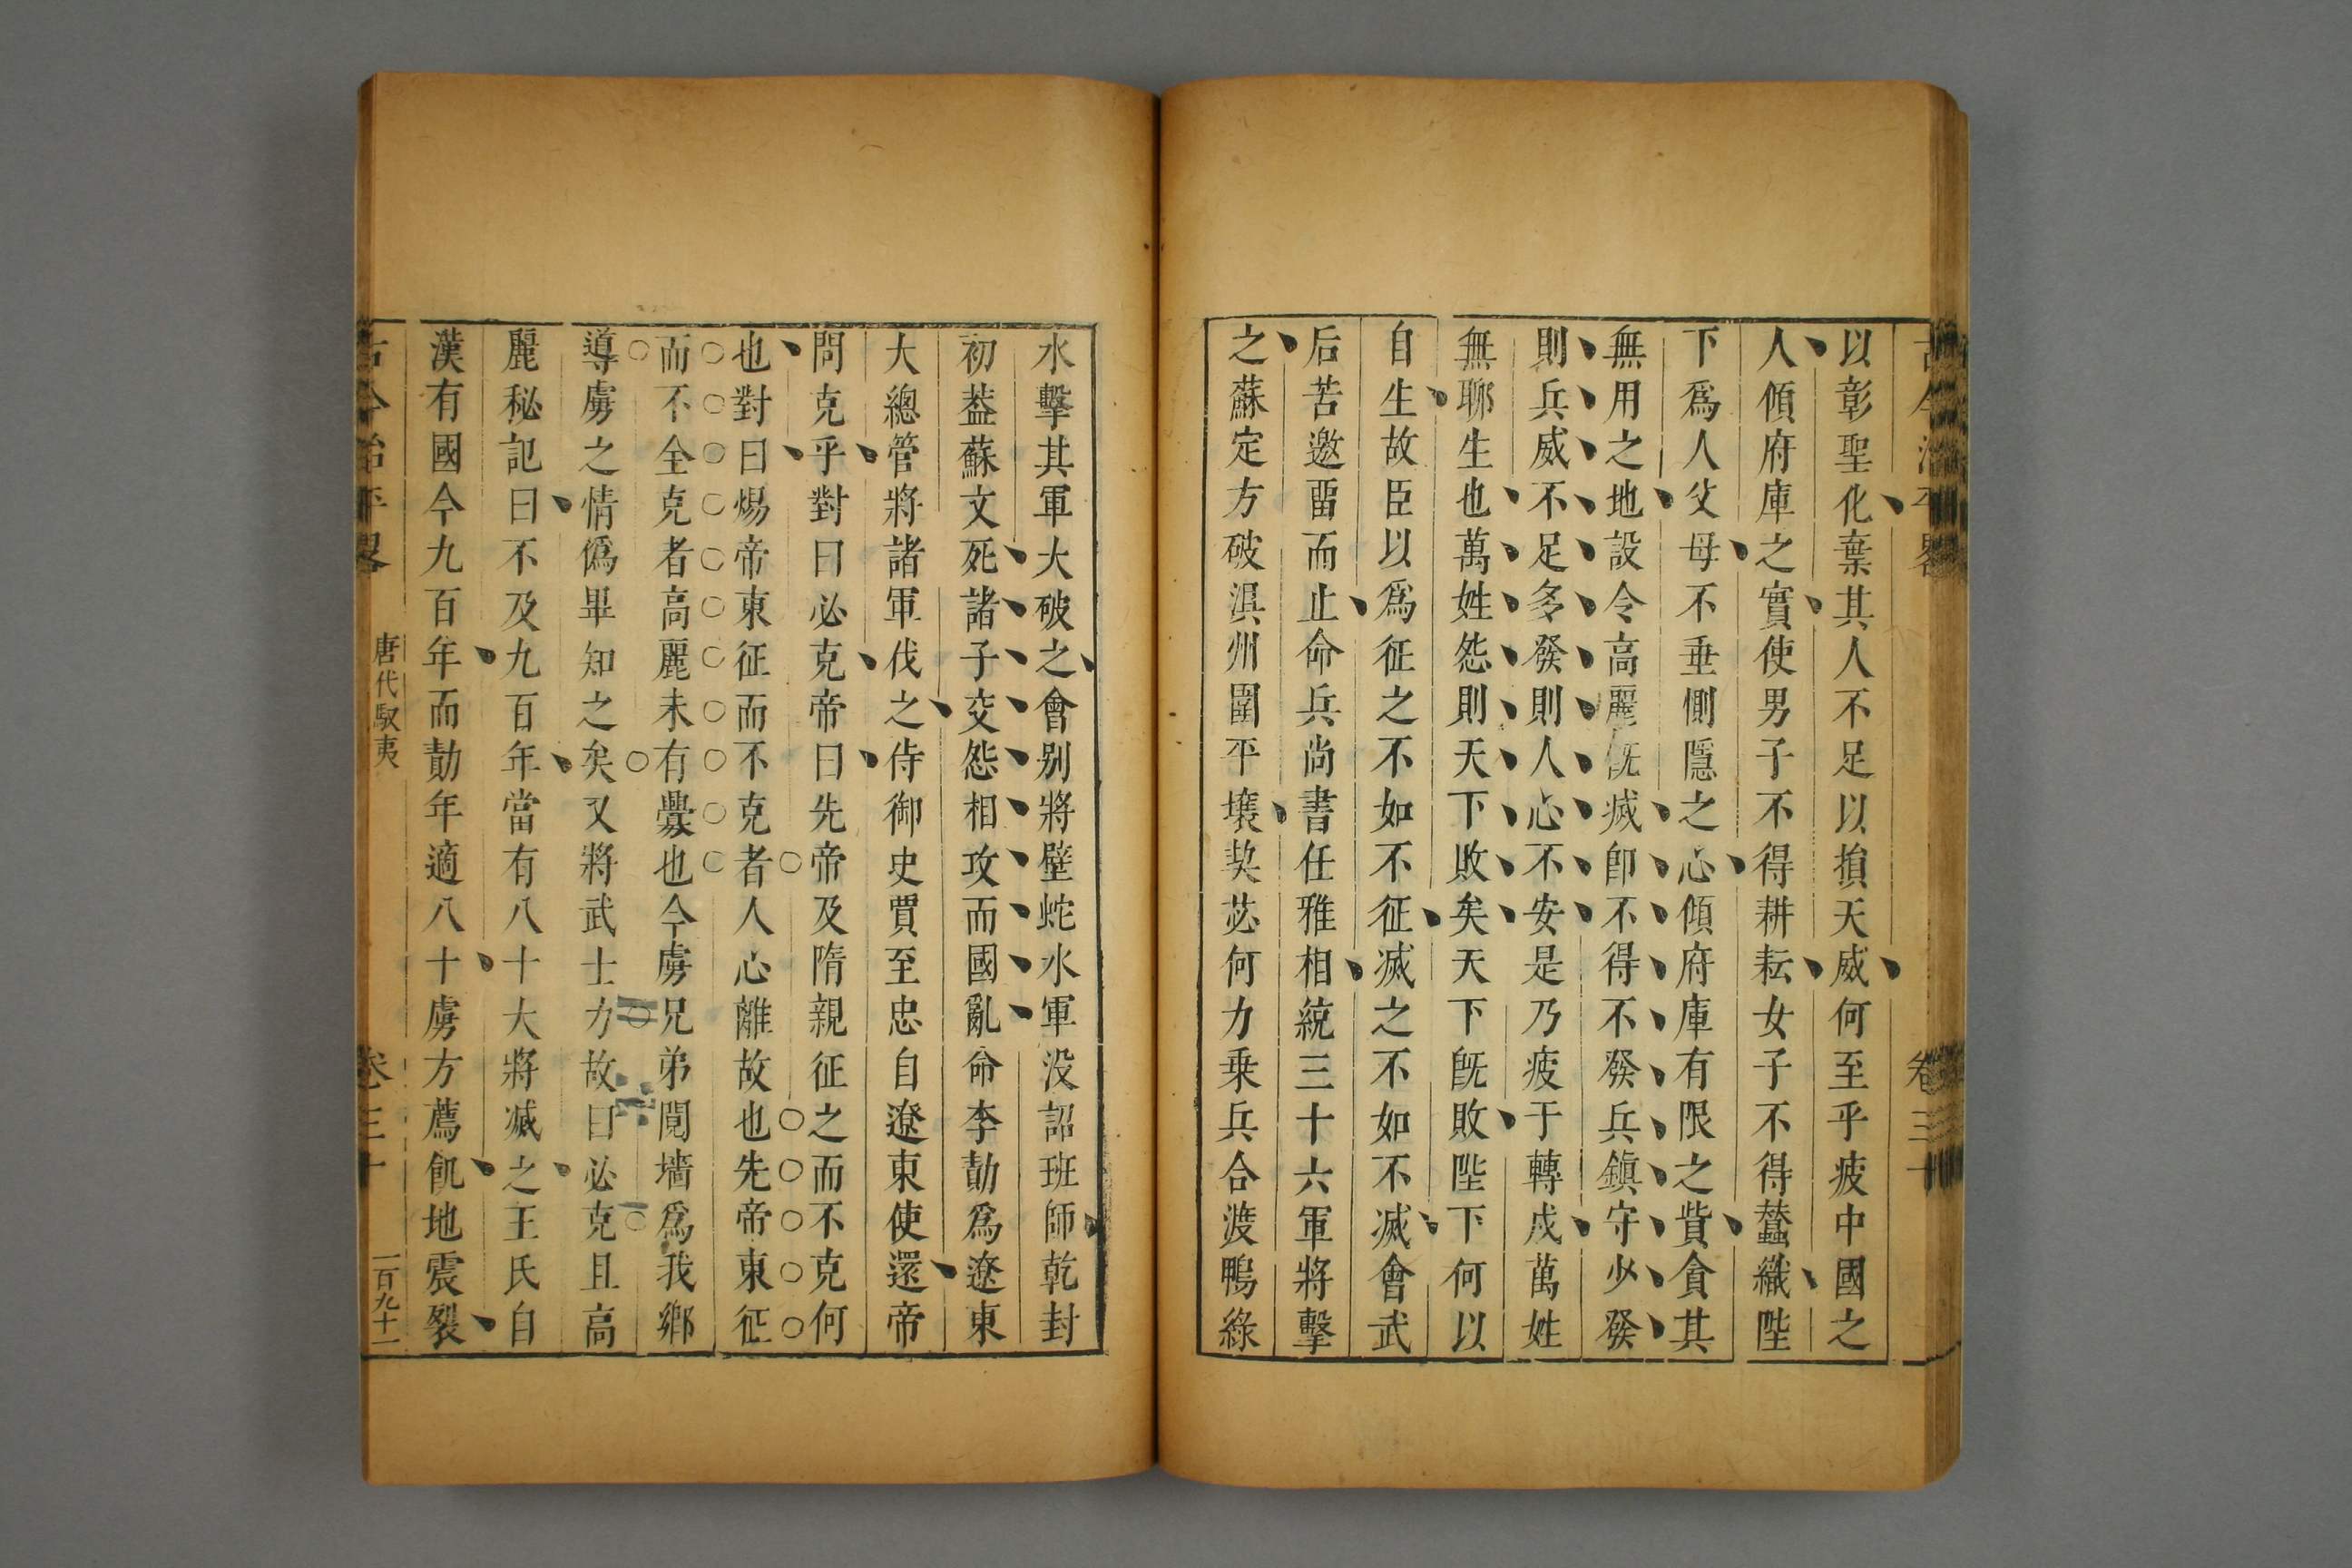 古今治平畧 卷三十
以彰聖化棄其人不足以損天威何至乎疲中國之
人傾府庫之實使男子不得耕耘女子不得蠶織陛
下爲人父母不垂惻隱之心傾府庫有限之貲貪其
無用之地設令高麗旣滅卽不得不發兵鎮守少發
則兵威不足多發則人心不安是乃疲于轉戍萬姓
無聊生也萬姓怨則天下敗矣天下旣敗陛下何以
自生故臣以爲征之不如不征滅之不如不滅會武
后苦邀畱而止命兵尚書任雅相統三十六軍將擊
之蘇定方破浿州圍平壤契苾何力乗兵合渡鴨綠
水擊其軍大破之會别將壁蛇水軍没詔班師乾封
初葢蘇文死諸子交怨相攻而國亂命李勣爲遼東
大總管將諸軍伐之侍御史賈至忠自遼東使還帝
問克乎對曰必克帝曰先帝及隋親征之而不克何
也對曰煬帝東征而不克者人心離故也先帝東征
而不全克者高麗未有釁也今虜兄弟鬩墻爲我鄉
導虜之情僞畢知之矣又將武士力故曰必克且高
麗秘記曰不及九百年當有八十大將滅之王氏自
漢有國今九百年而勣年適八十虜方薦飢地震裂
古今治平畧 唐代馭夷 卷三十 一百九十一